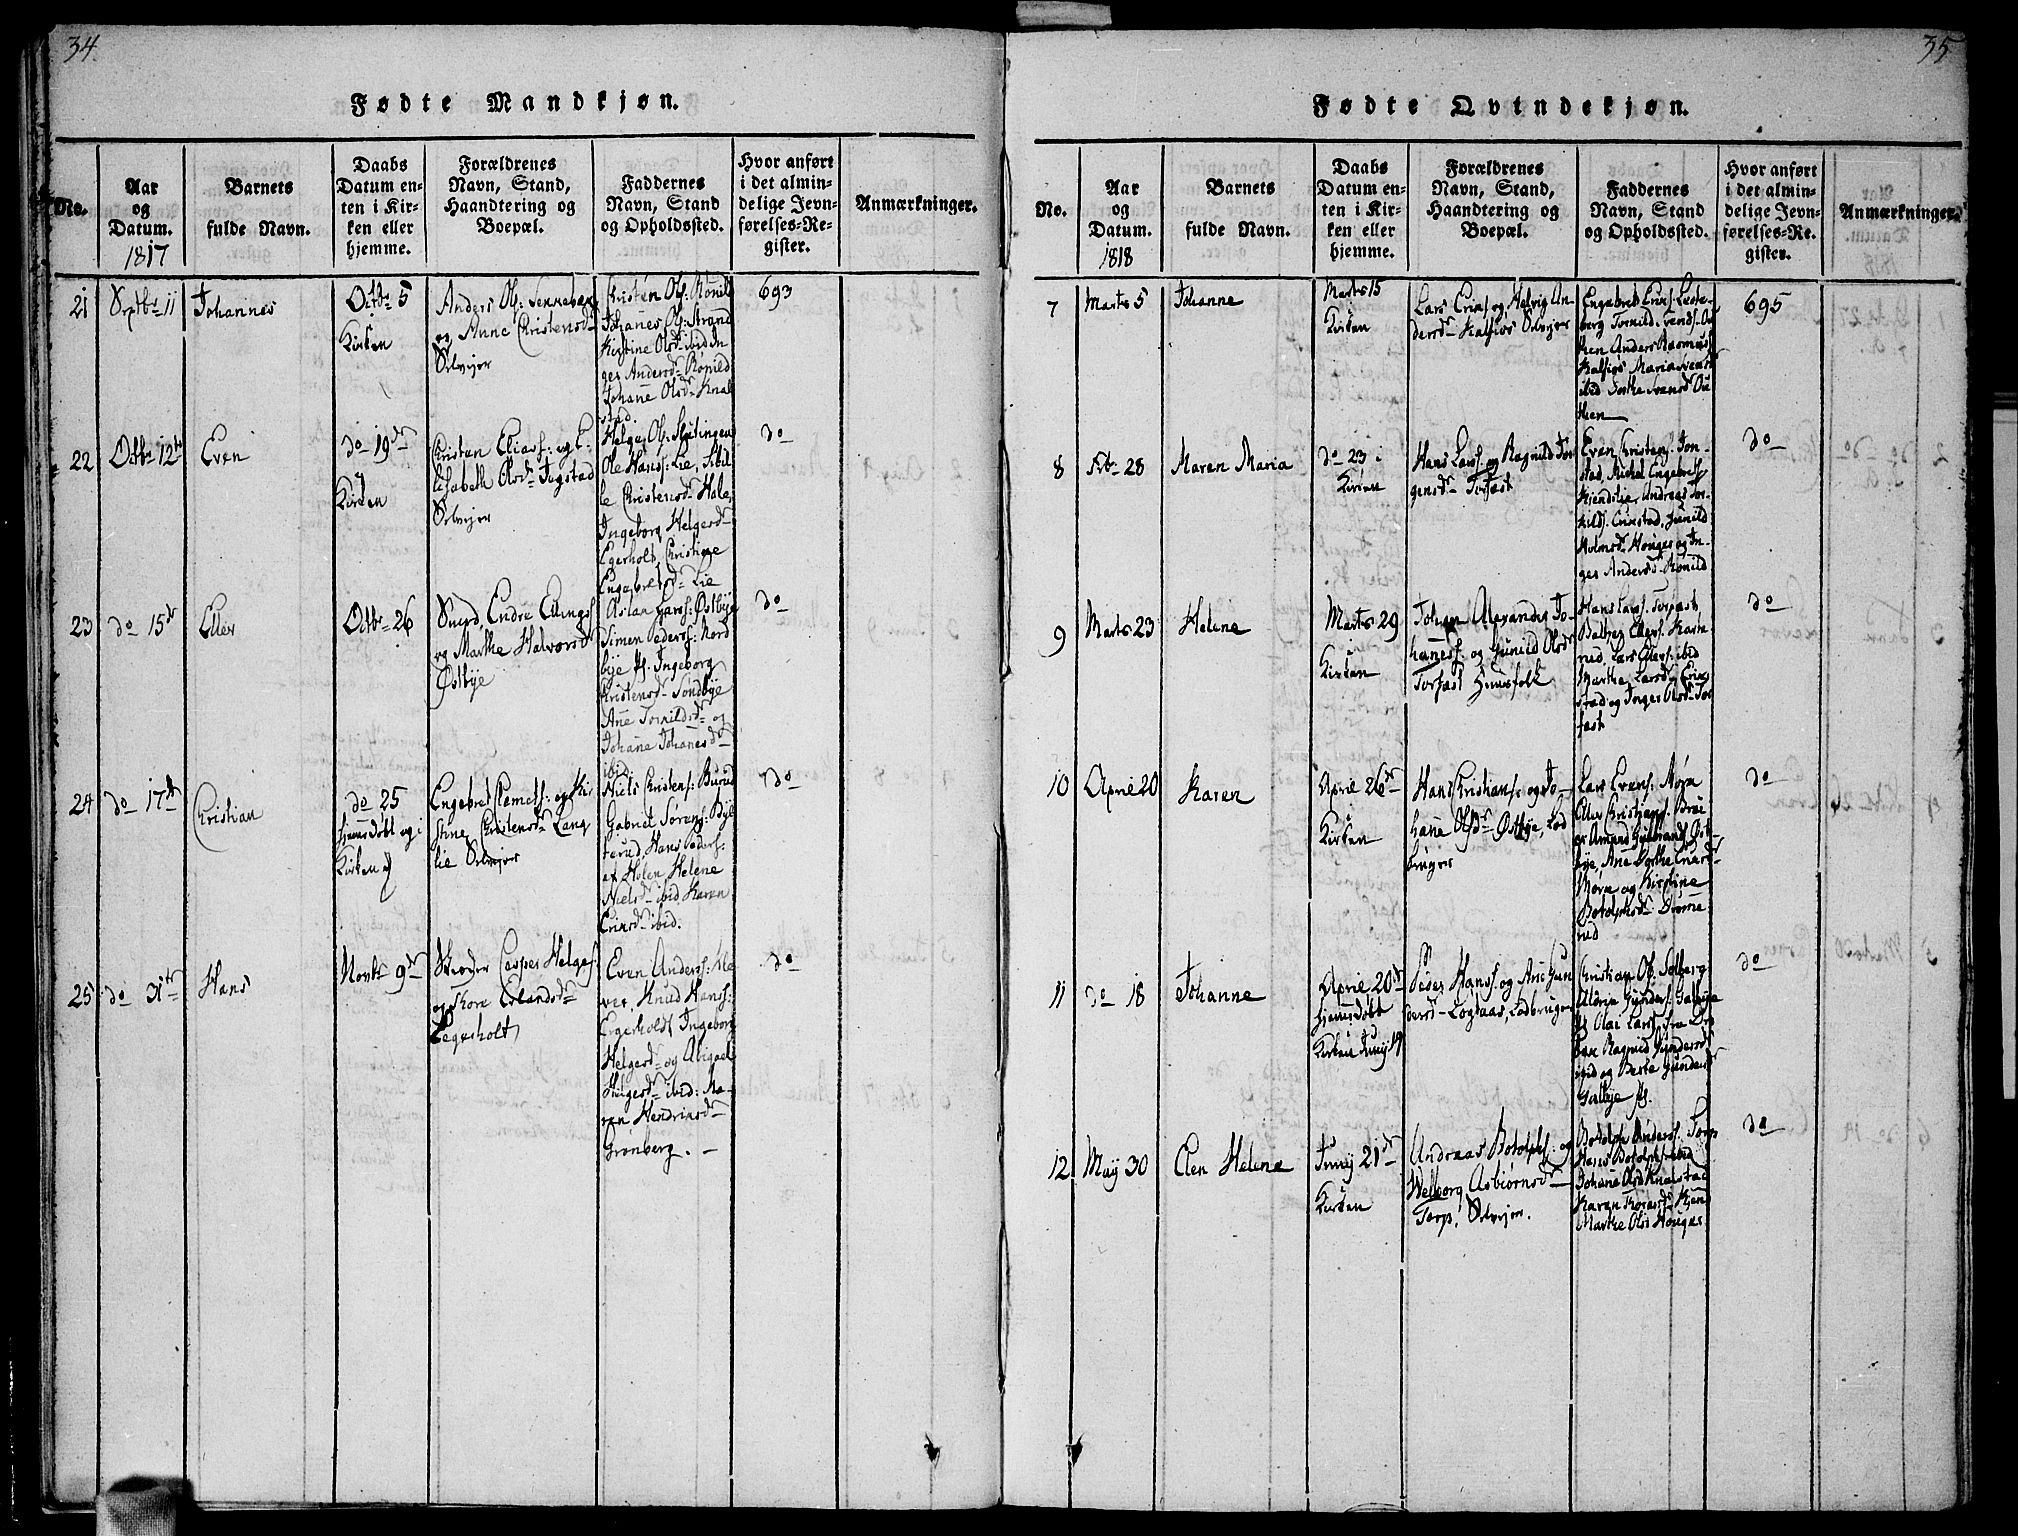 34.
Fødte Mandkjøn.
No.
Aar
og
Datum.
1817
Barnets
fulde Navn.
Daabs
Datum en-
ten i Kir-
ken eller
hjemme.
Forældrenes
Navn, Stand,
Haandtering og
Boepæl.
Faddernes
Navn, Stand
og Opholdssted.
Hvor anført
i det almin-
delige Jevn-
førelses-Re-
gister.
Anmærkninger.
21
Septbr 11
Johannes
Octbr 5
Kirken
Anders Ols:
og Anne Christensd
Selvejer
Christen Ols: Rønild
Johanes Ols: Strand
Kirstine Olsd ibid In
ger Andersd Rønild
Johane Olsd Knal
stad.
693
22
Octbr 12te
Even
do 19de
Kirken
Christen Eliass: og E-
lisabeth Olsd Jegstad
Selvejer
Helge Ols: Slitingen
Ole Hanss: Lie, Sibil
le Christensd Hole,
Ingeborg Helgesd
Egerholt, Christiane
Engebretsd Lie
do
23
do 15de
Eller
Octbr 26
Smed Endre Ellingss
og Marthe Halvorsd
Østbye
Aslak Hanss: Østbye
Simen Peders: Nord
bye Pg. Ingeborg
Christensd Sondbye
Ane Torkildsd og
Johane Johanesd
ibid
do
24
do 17de
Christian
do 25
hjemedøbt og i
Kirken
Engebret Clemets: og Kir
stine Christensd Lang
lie Selvejer
Niels Christens: Burud
Gabriel Sørens: Byl
terud, Hans Peders:
ex Holen, Helene
Nielsd ibid, Karen
Ericsd ibid.
do
25
do 31te
Hans
Novbr 9de
Skræder Casper Helges:
og Kore Erlandsd
Eegerholt
Even Anders:
ver, Knud Hans:
Egerholdt Ingeborg
Helgesd og Abigael
Helgesd ibid: Ma-
ren Hendriksd
Grønberg. –
do
35
Fødte Qvindekjøn.
No.
Aar
og
Datum.
1818
Barnets
fulde Navn.
Daabs
Datum en-
ten i Kir-
ken eller
hjemme.
Forældrenes
Navn, Stand,
Haandtering og
Boepæl.
Faddernes
Navn, Stand
og Opholdssted.
Hvor anført
i det almin-
delige Jevn-
førelses-Re-
gister.
Anmærkninger.
7
Marts 5
Johanne
Marts 15
Kirken
Lars Erics: og Helvig An
dersd Kalsios Selvejer
Engebret Erics:
berg Torkild Svends:
Anders Rasmuss
Kalsios Maria
ibid Svensd
695
8
Febr 28
Maren Maria
do 23 i
Kirken
Hans Larss: og Ragnild Jør
gensd Torfast
Even Christens: Jon-
stad, Michel Engebrets
Kjendslie, Andreas Tor-
kilds. Gunild
Holmsd Houger og In-
ger Andersd Rønild
do
9
Marts 23
Helene
Marts 29
Kirken
Johan Alexander Jo-
haness: og Gunild Olsd
Torfast Huusfolk
Hans Larss: Torfast
Balzer Ellefs.
rud, Lars Ellefs. ibid
Marthe Larsd Eric
stad og Inger Olsd Tor
fast
do
10
April 20
Karen
April 26de
Kirken
Hans Christians: og Jo-
hane Olsd Østbye, Lod
bruger
Lars Evens: Mørn
Ole Christians: Brat
er Amund Gulbrands Øst-
bye, Ane Dorthe
Mørn og Kirstine
Botolphsd Strøme
rud
do
11
do 18
Johanne
April 20de
hjemedøbt
Kirken Juny 19
Peder Hanss: og Ane Gun
dersd Logtaas, Lodbruger
Christian Ols: Solberg
Gunders: Galbye
Pg Olai Larss:
Ragnild Gundersd
ibid og Berte Gundersd
Galbye Pg.
do
12
May 30
Elen Helene
Juny 21de
Kirken
Andreas Botolphs: og
Welborg Asbiørnsd
Torp, Selvejer.
Botolph Anders. Torp
Hans Botolphs. ibid
Johane Olsd Knalstad
Karen
Marthe Olsd Houger
do